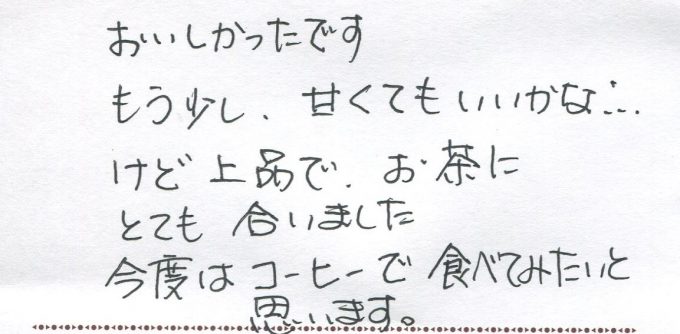 おいしかったです
もう少し、甘くてもいいかな…
けど上品で、お茶に
とても 合いました
今度は コーヒーで 食べてみたいと
思います。